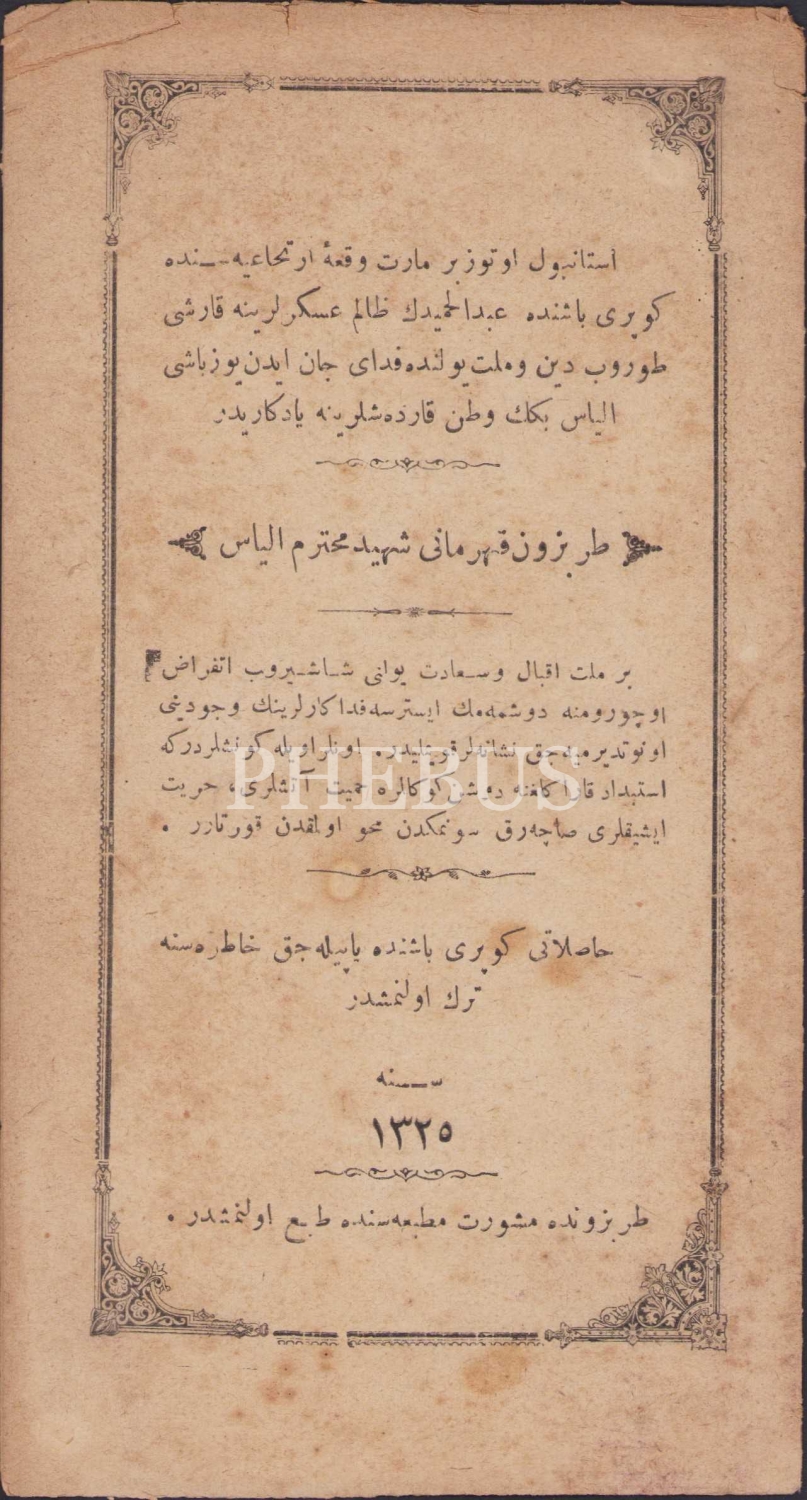 استانبول اوتوز بر مارت وقعهٔ ارتجاعیه سنده
کوپری باشنده عبدالحمیدك ظالم عسکرلرینه قارشی
طوروب دین وملت یولنده فدای جان ایدن یوزباشی
الیاس بکك وطن قارده شلرینه یادکاریدر
طربزون قهرمانی شهید محترم الیاس
بر ملت اقبال وسعادت یوانی شاشیروب انفراض
اوچورومنه دوشمه مك ایسترسه فداکارلرینك وجودینی
اونوتدیرمیه جق نشانه لر قویملیدر. اونلر اویله کونشلردرکه
استبداد قارا کلغنه دوشن حمیت آتشلری، حریت
ایشیقلری صاچه رق سونمکدن محو اولمقدن قورتارر .
PHEBUS
حاصلاتی کوپری باشنده یاپیله جق خاطره سنه
ترك اولنمشدر
سنه
١٣٢٥
طربزونده مشورت مطبعه سنده طبع اولنمشدر .